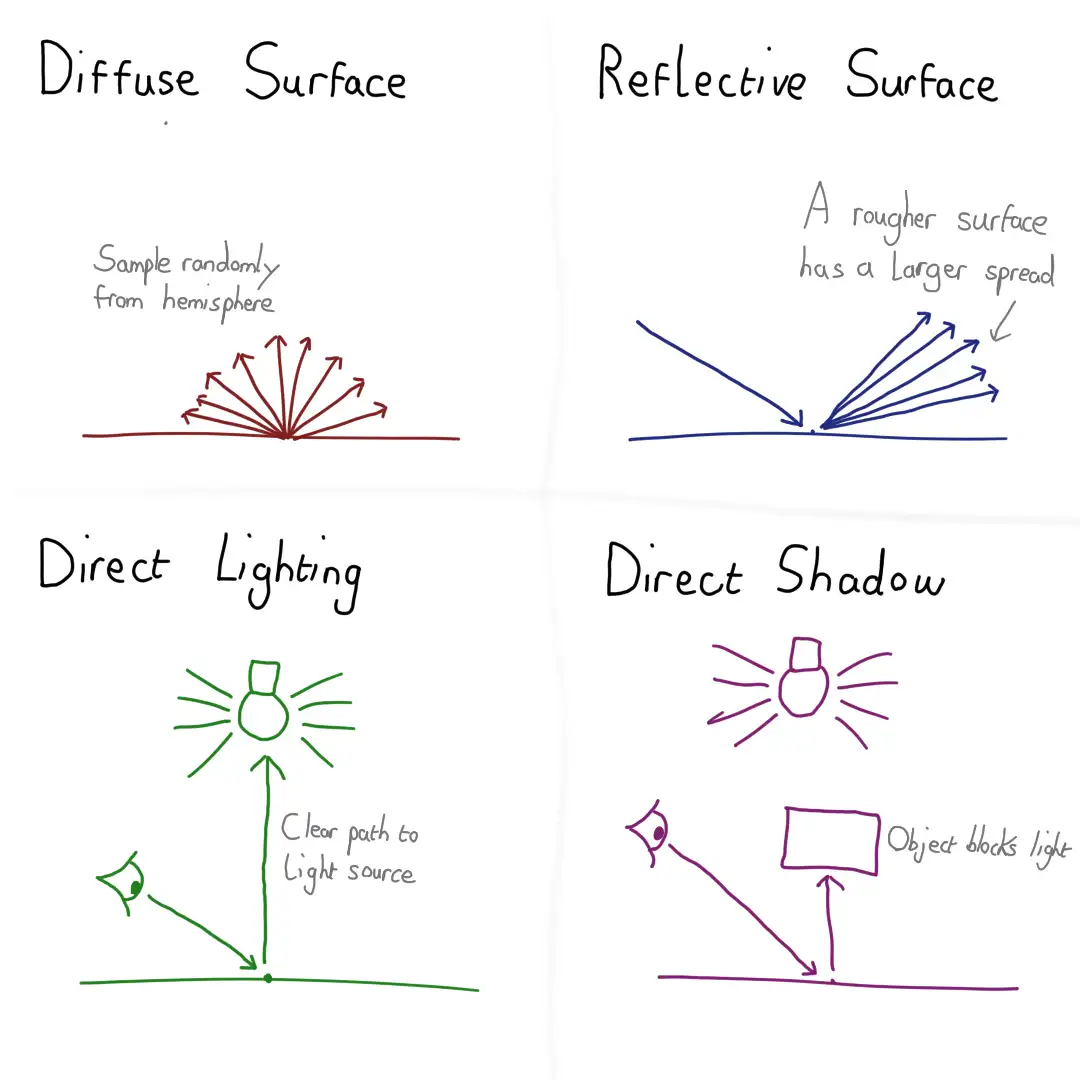 Diffuse Surface
Sample randomly
from hemisphere
Reflective Surface
A rougher surface
has a larger spread
Direct Lighting
Clear path to
light source
Direct Shadow
Object blocks light